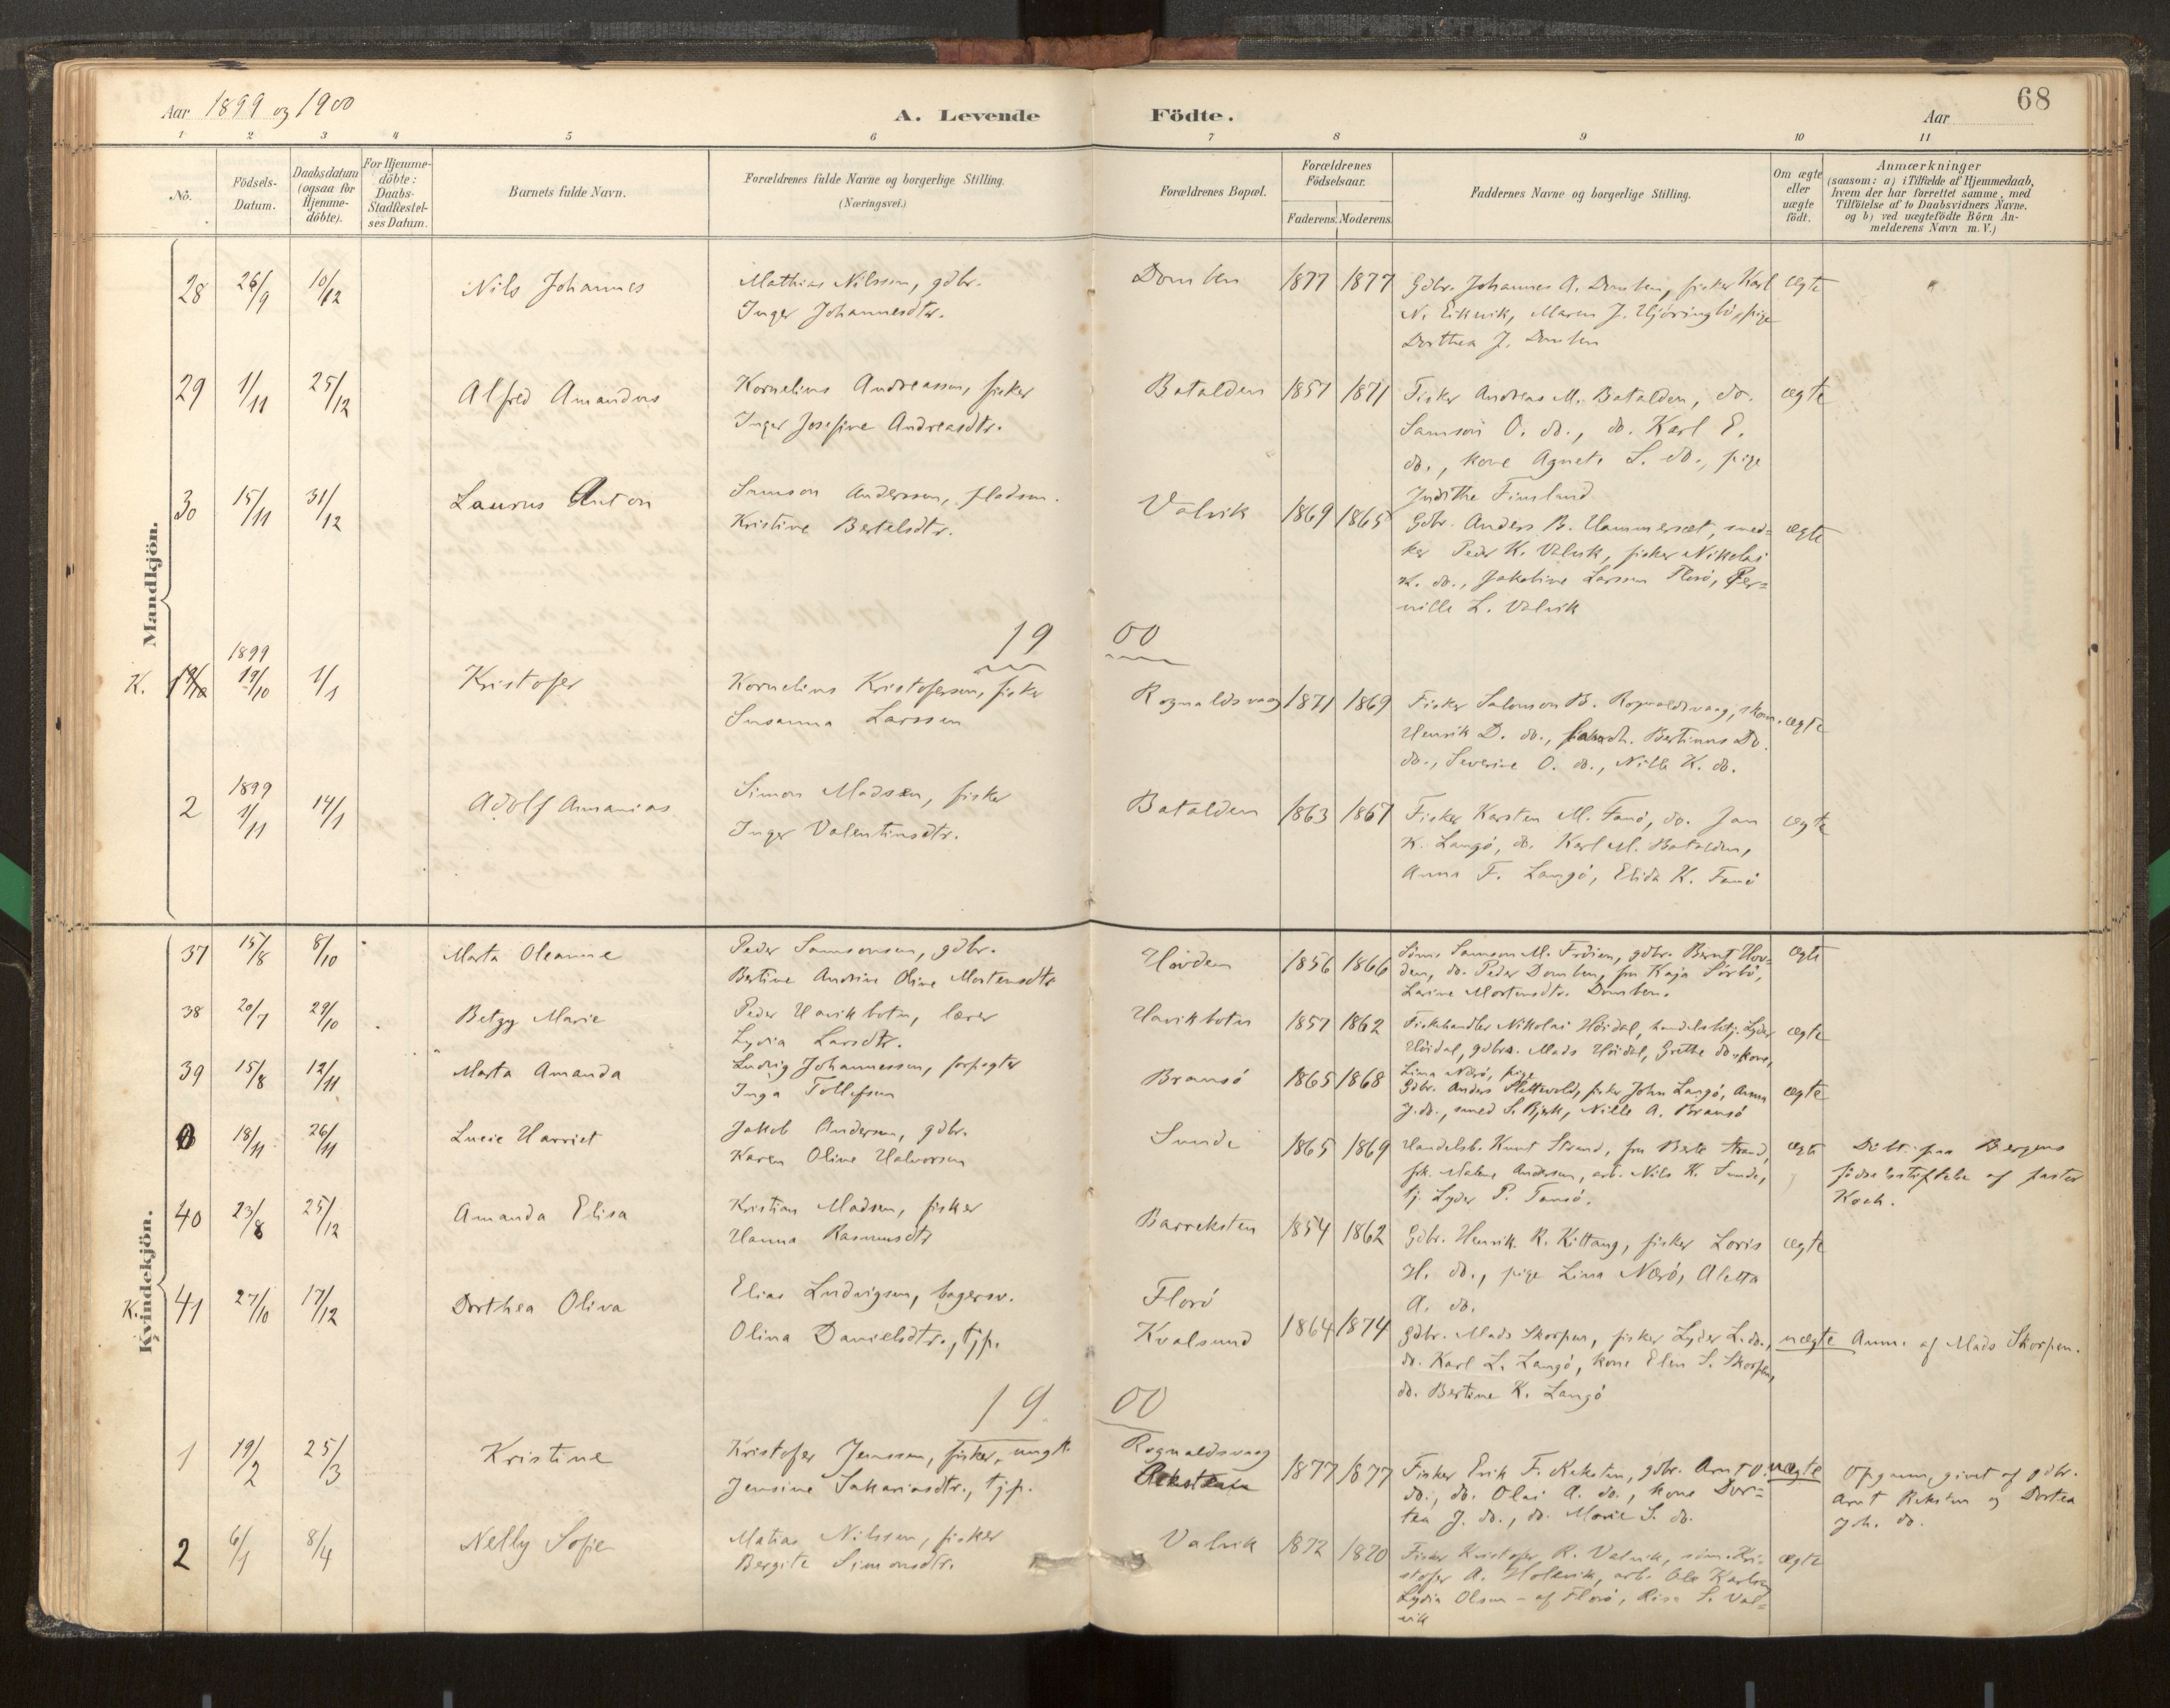 68
Aar 1899 og 1900
A. Levende Födte.
Aar
1 2 3 4 5 6 7 8 9 10 11
No.
Födsels-Datum.
Daabsdatum (ogsaa for Hjemme-döbte).
For Hjemme-döbte: Daabs-Stadfæstel-ses Datum.
Barnets fulde Navn.
Forældrenes fulde Navne og borgerlige Stilling.
(Næringsvei.)
Forældrenes Bopæl.
Forældrenes Födselsaar.
Faderens. Moderens.
Faddernes Navne og borgerlige Stilling.
Om ægte eller uægte födt.
Anmærkninger
(saasom: a) i Tilfælde af Hjemmedaab,
hvem der har forrettet samme, med
Tilföielse af to Daabsvidners Navne.
og b) ved uægtefödte Börn An-
melderens Navn m. V.)
Mandkjön.
28 26/9 10/12 Nils Johannes
Mathias Nilssen, gdbr.
Inger Johannesdtr.
Domben 1877 1877
Gdbr. Johannes A. Domben, fisker Karl
N. Eikevik, Maren J. Hjöringbö, pige
Dorthea J. Domben
ægte
29 1/11 25/12 Alfred Amandus
Kornelius Andreassen, fisker
Inger Josefine Andreasdtr.
Batalden 1857 1871
Fisker Andreas M. Batalden, do.
Samson O. do., do. Karl E.
do., kone Agnete S. do., pige
Judithe Finsland
ægte
30 15/11 31/12 Laurus Anton
Samson Anderssen, pladsm.
Kristine Bertelsdtr.
Valvik 1869 1865
Gdbr. Anders B. Hammerset, sned=
ker Peder K. Valvik, fisker Nikolai
K. do., Jakobine Larssen Florö, Per=
nille L. Valvik
ægte
1900
K. 1899 19/10 1/1 Kristofer
Kornelius Kristofersen, fisker
Susanna Larssen
Rognaldsvaag 1871 1869
Fisker Salomon B. Rognaldsvaag, skom.
Henrik D. do., Bertinus do.
do., Severine O. do., Nille K. do.
ægte
2 1899 1/11 14/1 Adolf Ananias
Simon Madsen, fisker
Inger Valentinsdtr.
Batalden 1863 1867
Fisker Karsten M. Fanö, do. Jan
K. Langö, do. Karl M. Batalden,
Anna F. Langö, Elida K. Fanö
ægte
Kvindekjön.
37 15/8 8/10 Marta Oleanne
Peder Samsonsen, gdbr.
Bertine Andrine Oline Mortensdtr
Hovden 1856 1866
Samson M. Fröien, gdbr. Bernt Hov=
den, do. Peder Domben, fru Kaja Sörbö,
Larine Mortensdtr. Domben.
ægte
38 20/7 29/10 Betzy Marie
Peder Havikbotn, lærer
Lydia Larsdtr.
Havikbotn 1857 1862
Fiskhandler Nikolai Höidal, handelsbtj. Lyder
Höidal, gdbr. Mads Höidal, Grethe do. kone,
Lina Nærö, pige
ægte
39 15/8 12/11 Marta Amanda
Ludvig Johannessen, forpagter
Inga Tollefsen
Bransö 1865 1868
Gdbr. Anders Slettevold, fisker John Langö, Anna
J. do., smed S. Bjerk, Nille A. Bransö
ægte
0 18/11 26/11 Lucie Harriet
Jakob Andersen, gdbr.
Karen Oline Halvorsen
Sunde 1865 1869
Handelsb. Knut Strand, fru Berte Strand,
frk. Malene Andersen, arb. Nils K. Sunde,
tj. Lyder P. Tansö.
ægte
Döbt paa Bergens
födselsstiftelse af pastor
Koch.
40 23/8 25/12 Amanda Elisa
Kristian Madsen, fisker
Hanna Rasmusdtr
Barreksten 1854 1862
Gdbr. Henrik R. Kittang, fisker Loris
H. do., pige Lina Nærö, Aletta
A. do.
ægte
K. 41 27/10 17/12 Dorthea Oliva
Elias Ludvigsen, bagersv.
Olina Danielsdtr., tjp.
Florö
Kvalsund 1864 1874
Gdbr. Mads Skorpen, fisker Lyder L. do.,
do. Karl L. Langö, kone Elen S. Skorpen,
do. Bertine K. Langö
uægte
Anm. af Mads Skorpen.
1900
1 19/2 25/3 Kristine
Kristofer Jenssen, fisker, ungk.
Jensine Sakariasdtr., tjp.
Rognaldsvaag
Rekstein 1877 1877
Fisker Erik F. Reksten, gdbr. Arnt O.
do., do. Olai A. do., kone Dor=
tea J. do., do. Marie S. do.
uægte
Opgaven givet af gdbr.
Arnt Reksten og Dortea
Joh. do.
2 6/1 8/4 Nelly Sofie
Matias Nilssen, fisker
Bergite Simonsdtr.
Valvik 1872 1870
Fisker Kristofer R. Valvik, söm. Kri=
stofer A. Holevik, arb. Ole Karlsen,
Lydia Olsen - af Florö, Risa S. Val=
vik
ægte